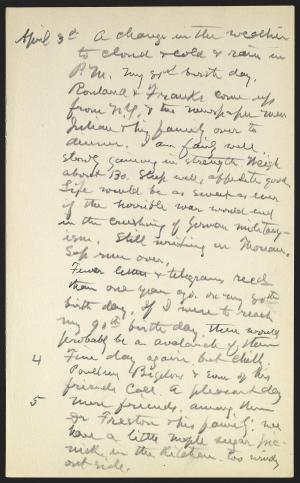 April 3d A change in the weather
to cloud & cold & rain in
P.M. My 81st birth day.
Rowland & Franks come up
from N.Y. & the newspaper men
Julian & his family over to
dinner. I am fairly well,
slowly gaining in strength. Weigh
about 130. Sleep well, appetite good
Life would be as sweet as ever
if the horrible war would end
in the crushing of German military-
ism. Still working on Thoreau.
Sap runs over.
Fewer letters & telegrams recd
than one year ago on my 80th
birth day. If I were to reach
my 90th birth day there would
probably be an avalanch of them
4 Fine day again, but chill.
Poultney Bigelow & some of his
friends call. A pleasant day
5 More friends, among them
Dr Preston & his family; we
have a little maple sugar pic-
nick in the kitchen. too windy
out side.